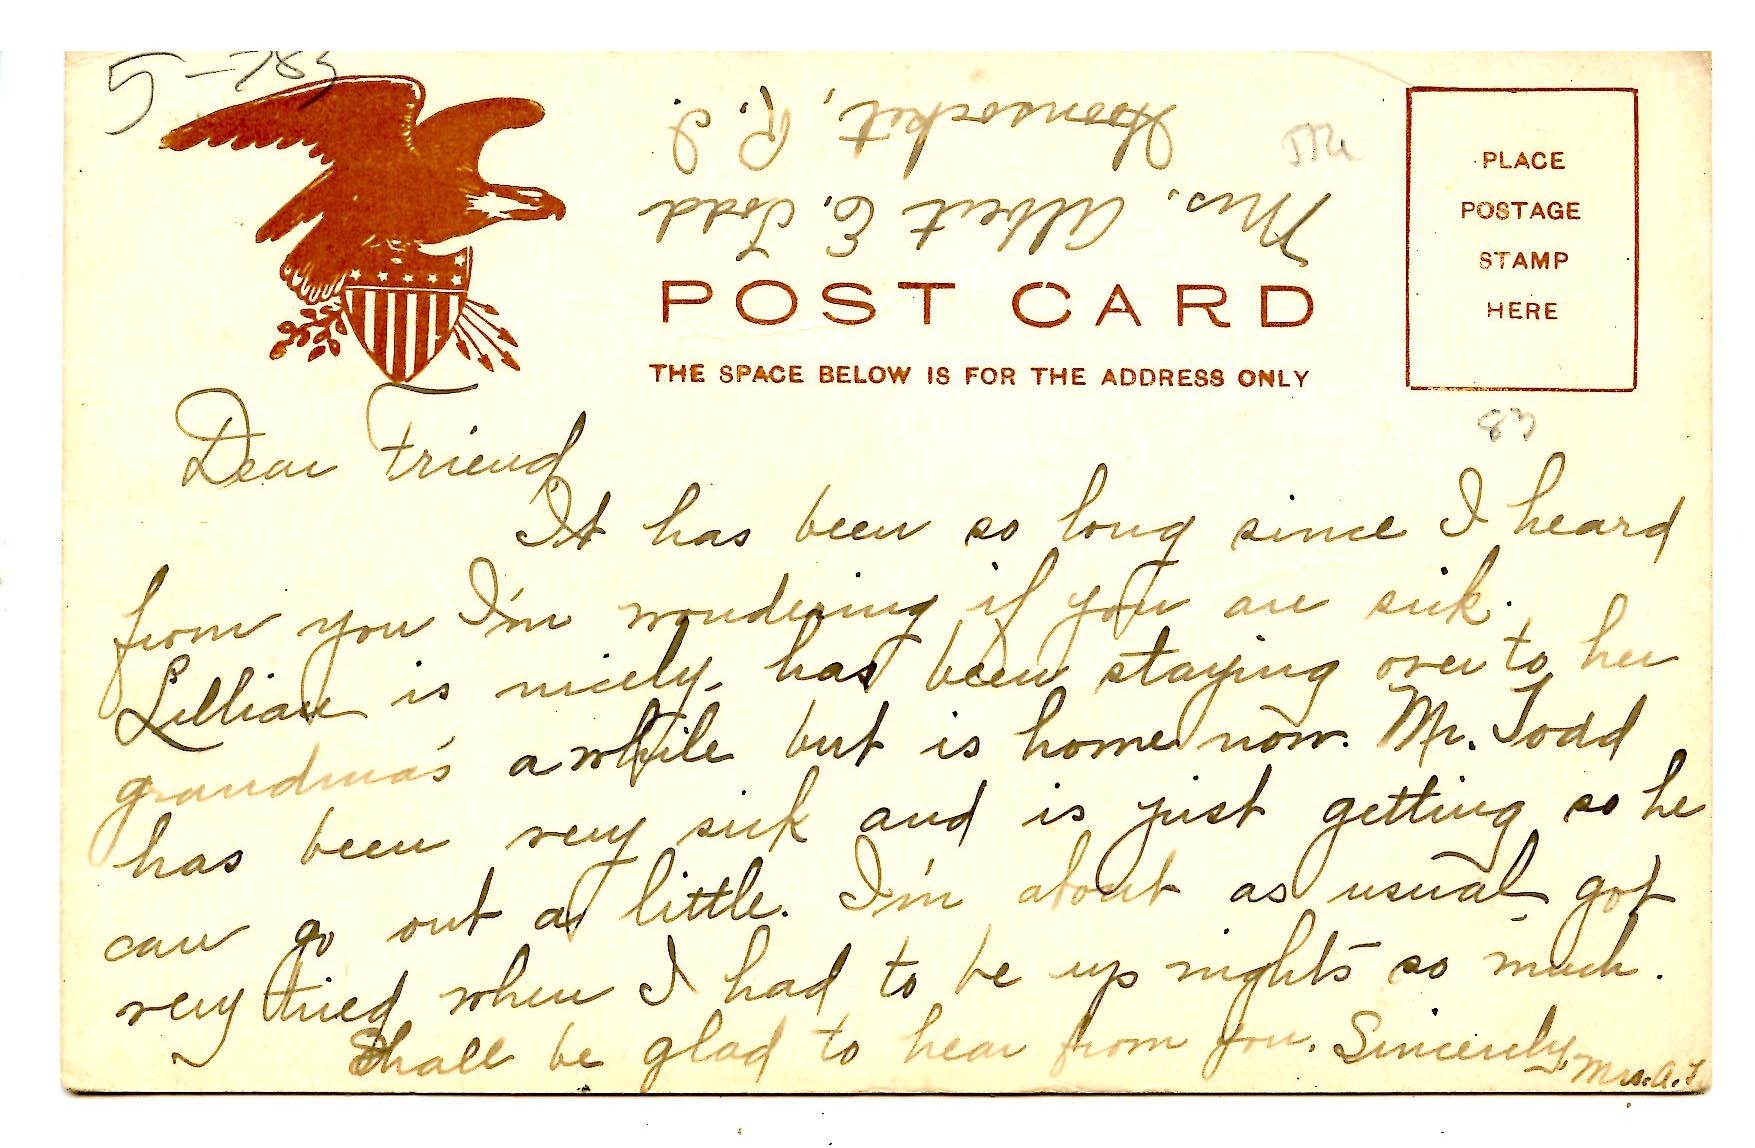 5-783
Mrs. Albert E. Todd
Woonsocket, R.I.
PLACE
POSTAGE
STAMP
HERE
POST CARD
THE SPACE BELOW IS FOR THE ADDRESS ONLY
83
Dear Friend
It has been so long since I heard
from you I'm wondering if you are sick.
Lillian is nicely, has been staying over to her
grandma's awhile but is home now. Mr. Todd
has been very sick and is just getting so he
can go out a little. I'm about as usual got
very tried when I had to be up nights so much.
Shall be glad to hear from you. Sincerely, Mrs. A.T